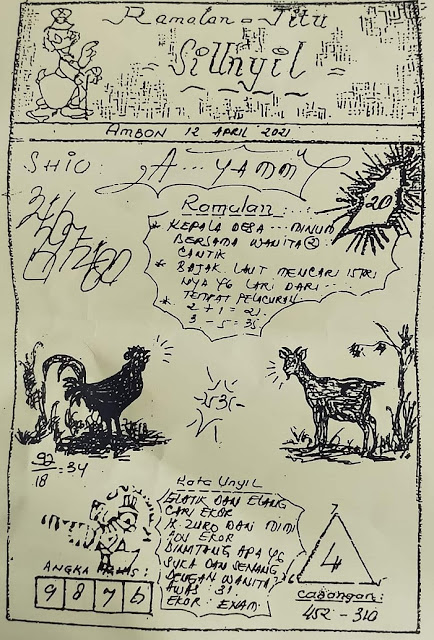 Ramalan - Jitu
Si Unyil
AMBON 12 APRIL 2021
SHIO: A...YAMMY
20
Ramalan:
* KEPALA DESA... MINUM
BERSAMA WANITA2
CANTIK
* BAJAK LAUT MENCARI ISTRI
NYA YG LARI DARI...
TEMPAT PELACURAN
* 2 + 1 = 21
3 - 5 = 35
92
18 = 34
Kata Unyil
GLATIK DAN ELANG
CARI EKOR
X. ZURO DAN MIMI
EKOR
BINATANG APA YG
SUKA DAN SENANG
DENGAN WANITA?
AWAS 31
EKOR: EXAM
ANGKA
9 8 7 6
7
6
4
Cabangan:
452 - 310